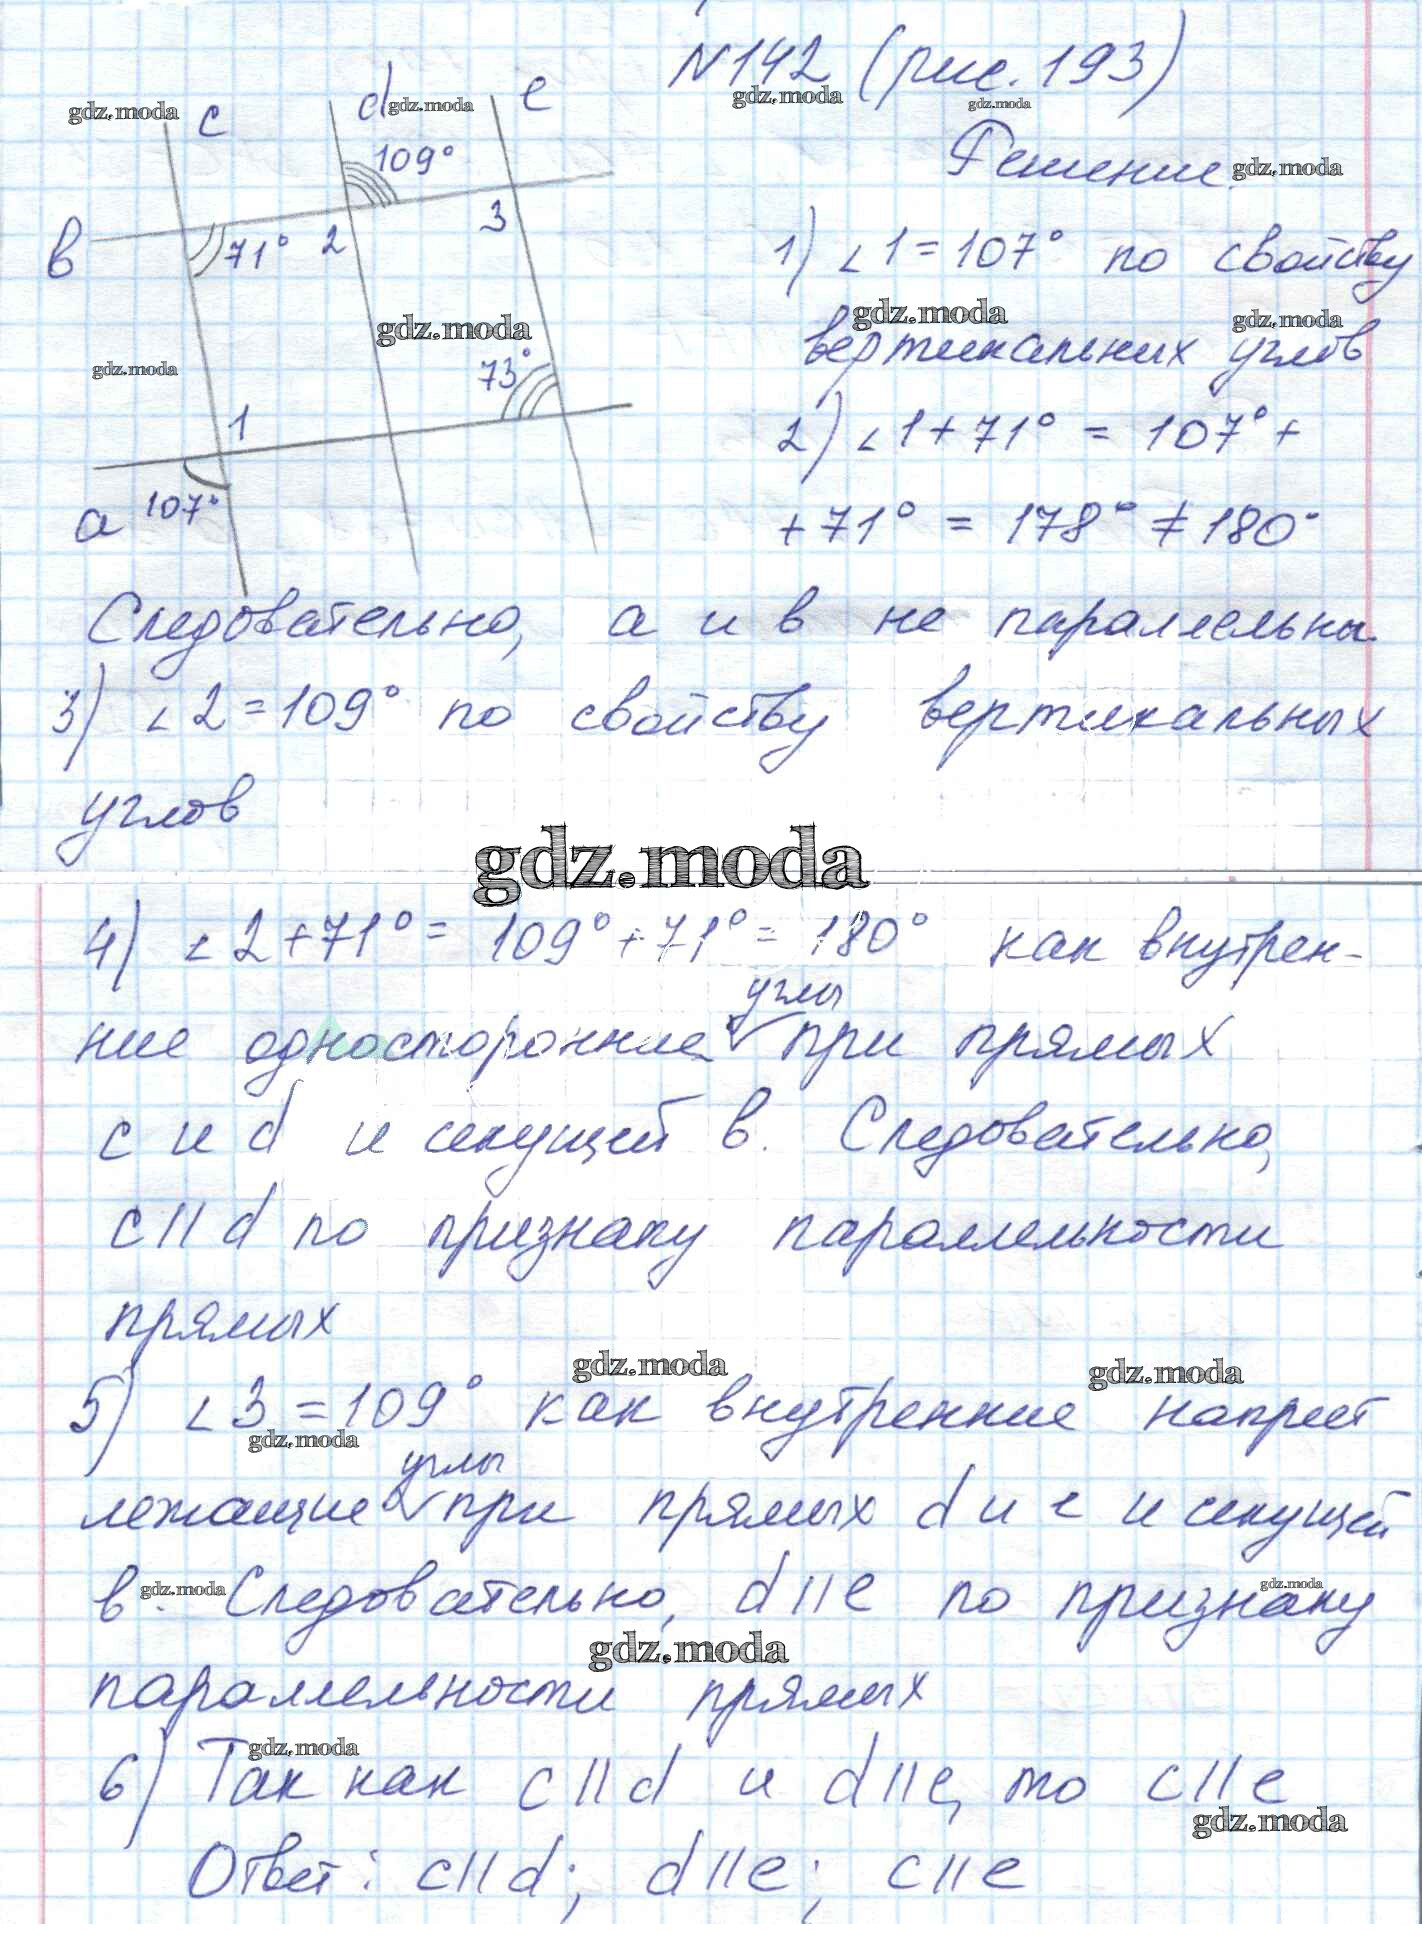 N142 (рис. 193)
gdz.moda
c
gdz.moda
d
gdz.moda
e
gdz.moda
109°
Решение.
gdz.moda
b
71°
2
3
1) ∠1 = 107° по свойству
gdz.moda
gdz.moda
gdz.moda
вертикальных углов
gdz.moda
73°
1
2) ∠1 + 71° = 107° +
a
107°
+ 71° = 178° ≠ 180°
Следовательно, a и b не параллельны.
3) ∠2 = 109° по свойству вертикальных
углов
gdz.moda
4) ∠2 + 71° = 109° + 71° = 180° как внутрен-
углы
ние односторонние при прямых
c и d и секущей b. Следовательно,
c || d по признаку параллельности
прямых
gdz.moda
gdz.moda
5) ∠3 = 109° как внутренние накрест
gdz.moda
углы
лежащие при прямых d и e и секущей
b. Следовательно, d || e по признаку
gdz.moda
gdz.moda
gdz.moda
параллельности прямых
gdz.moda
6) Так как c || d и d || e, то c || e
gdz.moda
Ответ: c || d; d || e; c || e